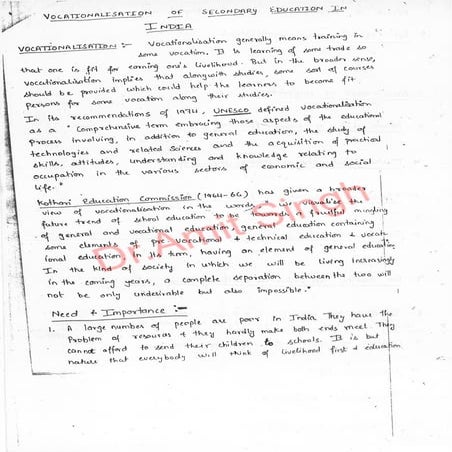 VOCATIONALISATION OF SECONDARY EDUCATION IN
INDIA
VOCATIONALISATION :- Vocationalisation generally means training in
some vocation. It is learning of some trade so
that one is fit for earning one's livelihood. But in the broader sense,
vocationalisation implies that alongwith studies, some sort of courses
should be provided which could help the learners to become fit
persons for some vocation along their studies.
In its recommendations of 1974, UNESCO defined vocationalisation
as a "Comprehensive term embracing those aspects of the educational
process involving, in addition to general education, the study of
technologies and related sciences and the acquisition of practical
skills, attitudes, understanding and knowledge relating to
occupation in the various sectors of economic and social
life."
Kothari Education Commission (1964-66) has given a broader
view of vocationalisation in the words, we visualise the
future trend of school education to be towards a fruitful mingling
of general and vocational education general education containing
some elements of pre-vocational & technical education & vocat-
ional education in its turn, having an element of general education.
In the kind of society in which we will be living increasingly
in the coming years, a complete separation between the two will
not be only undesirable but also impossible."
Need & Importance :-
1. A large number of people are poor in India. They have the
Problem of resouras & they hardly make both ends meet. They
cannot afford to send their children to schools. It is but
nature that everybody will think of livelihood first & education
Dr Amit Singh